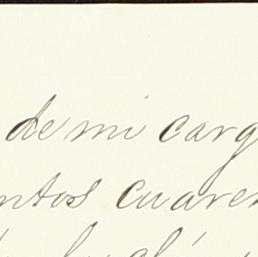 de mi carg
ntos cuaren